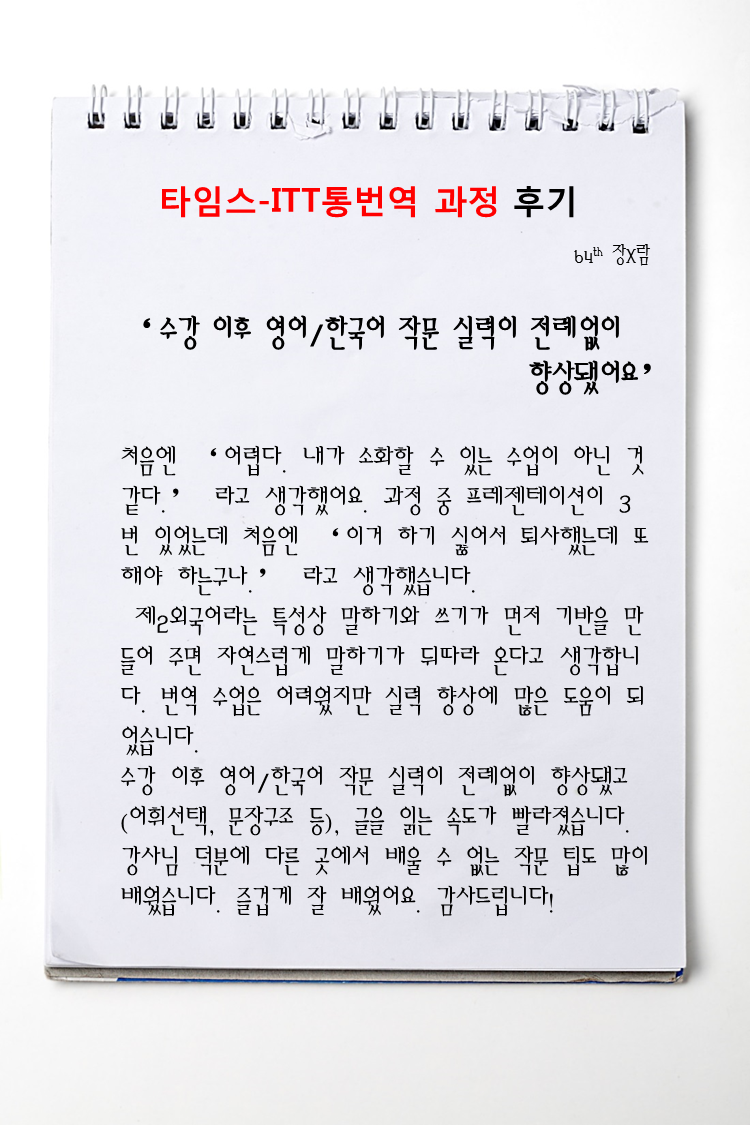 타임스-ITT통번역 과정 후기
64th 장X람
‘수강 이후 영어/한국어 작문 실력이 전례없이
향상됐어요’
처음엔 ‘어렵다. 내가 소화할 수 있는 수업이 아닌 것
같다.’ 라고 생각했어요. 과정 중 프레젠테이션이 3
번 있었는데 처음엔 ‘이거 하기 싫어서 퇴사했는데 또
해야 하는구나.’ 라고 생각했습니다.
제2외국어라는 특성상 말하기와 쓰기가 먼저 기반을 만
들어 주면 자연스럽게 말하기가 뒤따라 온다고 생각합니
다. 번역 수업은 어려웠지만 실력 향상에 많은 도움이 되
었습니다.
수강 이후 영어/한국어 작문 실력이 전례없이 향상됐고
(어휘선택, 문장구조 등), 글을 읽는 속도가 빨라졌습니다.
강사님 덕분에 다른 곳에서 배울 수 없는 작문 팁도 많이
배웠습니다. 즐겁게 잘 배웠어요. 감사드립니다!